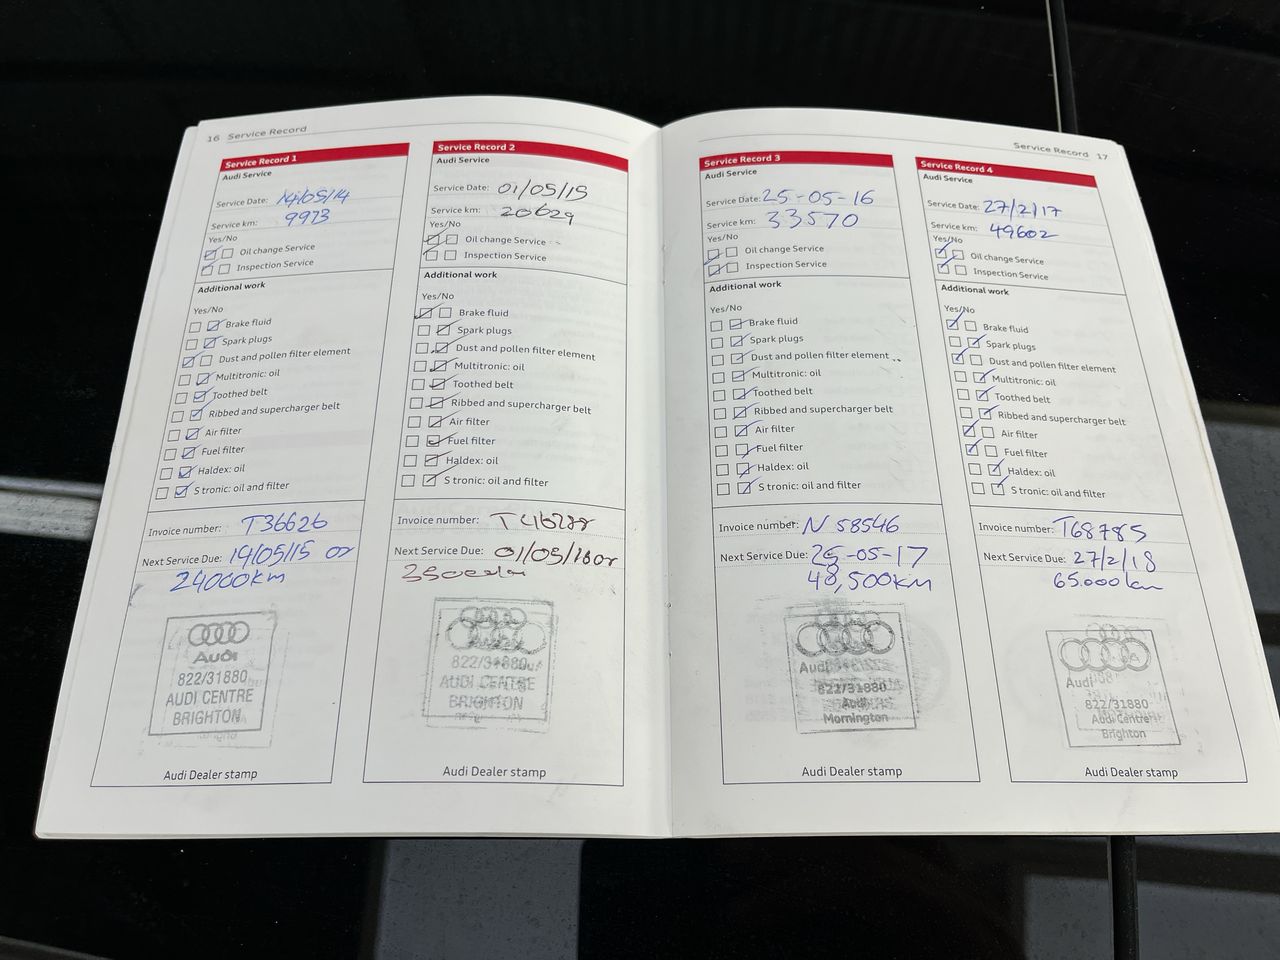 16 Service Record
Service Record 1
Audi Service
Service Date: 14/05/14
Service km: 9973
Yes/No
Oil change Service
Inspection Service
Additional work
Yes/No
Brake fluid
Spark plugs
Dust and pollen filter element
Multitronic: oil
Toothed belt
Ribbed and supercharger belt
Air filter
Fuel filter
Haldex: oil
S tronic: oil and filter
Invoice number: T36626
Next Service Due: 14/05/15 or
24000km
Audi
822/31880
AUDI CENTRE
BRIGHTON
Audi Dealer stamp
Service Record 2
Audi Service
Service Date: 01/05/15
Service km: 20629
Yes/No
Oil change Service
Inspection Service
Additional work
Yes/No
Brake fluid
Spark plugs
Dust and pollen filter element
Multitronic: oil
Toothed belt
Ribbed and supercharger belt
Air filter
Fuel filter
Haldex: oil
S tronic: oil and filter
Invoice number:
Next Service Due: 01/05/16 or
35000km
822/31880
AUDI CENTRE
BRIGHTON
Audi Dealer stamp
Service Record 17
Service Record 3
Audi Service
Service Date: 25-05-16
Service km: 33570
Yes/No
Oil change Service
Inspection Service
Additional work
Yes/No
Brake fluid
Spark plugs
Dust and pollen filter element
Multitronic: oil
Toothed belt
Ribbed and supercharger belt
Air filter
Fuel filter
Haldex: oil
S tronic: oil and filter
Invoice number: N 58546
Next Service Due: 25-05-17
48,500KM
Audi
822/31880
Audi
Mornington
Audi Dealer stamp
Service Record 4
Audi Service
Service Date: 27/2/17
Service km: 49602
Yes/No
Oil change Service
Inspection Service
Additional work
Yes/No
Brake fluid
Spark plugs
Dust and pollen filter element
Multitronic: oil
Toothed belt
Ribbed and supercharger belt
Air filter
Fuel filter
Haldex: oil
S tronic: oil and filter
Invoice number: T68785
Next Service Due: 27/2/18
65.000km
Audi
822/31880
Audi Centre
Brighton
Audi Dealer stamp